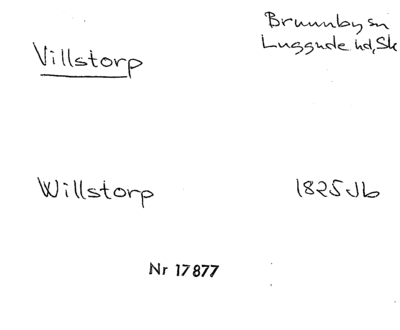 Villstorp
Brunnby sn
Luggude hd, Sk
Willstorp
1825 Jb
Nr 17877